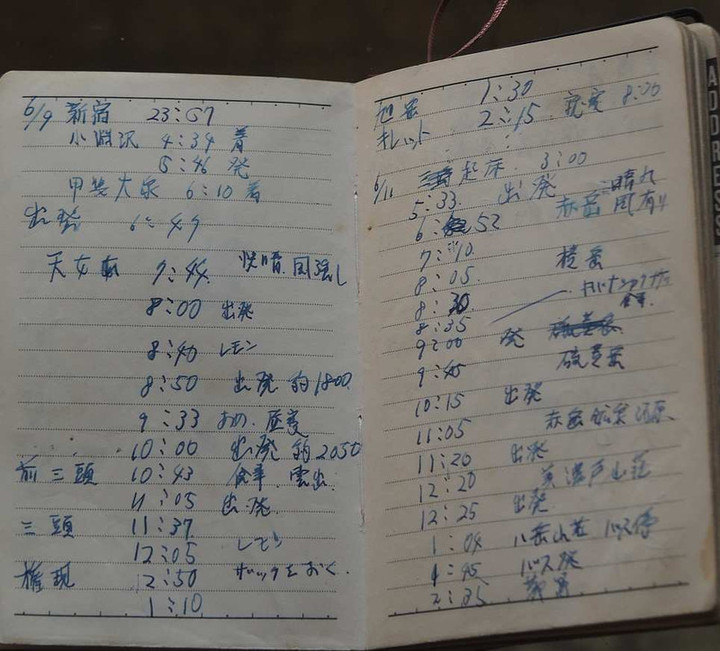 6/9 新宿 23:57
小淵沢 4:34 着
5:46 発
甲斐大泉 6:10 着
出発 6:49
天女山 7:44 快晴.風強し
8:00 出発
8:40 レモン
8:50 出発 約1800
9:33 昼寝
10:00 出発 約2050
前三頭 10:43 食事 雲出
11:05 出発
三頭 11:37
12:05 レモン
権現 12:50 ザックをおく.
1:10
旭岳 1:30
キレット 2:15 就寝 8:00
6/11 起床 3:00
5:33 出発 晴れ
6:52 赤岳 風有り
7:10
8:05 横岳
8:30
8:35 食事.
9:00 発
9:45 硫黄岳
10:15 出発
11:05 赤岳鉱泉
11:20 出発
12:20 美濃戸山荘
12:25 出発
1:04 八ヶ岳山荘 バス停
1:45 バス発
2:25 茅野
ADDRESS